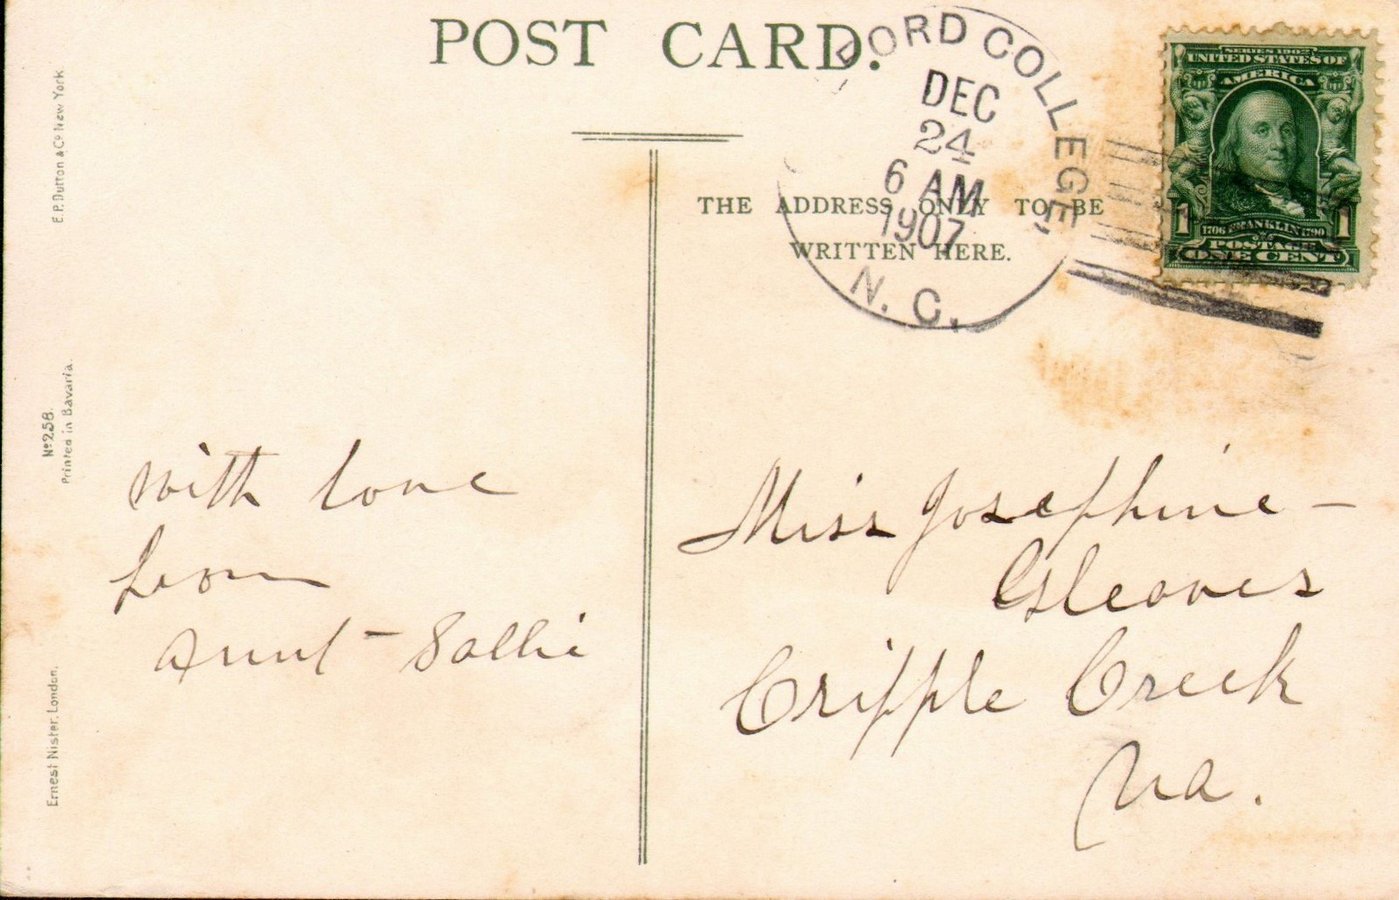 POST CARD.
FORD COLLEGE,
DEC
24
6 AM
1907
N. C.
SERIES 1902
UNITED STATES OF
AMERICA
1 1
1706 FRANKLIN 1790
POSTAGE
ONE CENT
THE ADDRESS ONLY TO BE
WRITTEN HERE.
E.P. Dutton & Co. New York
No 258.
Printed in Bavaria.
Ernest Nister, London.
with love
from
Aunt - Sallie
Miss Josephine -
Gleaves
Cripple Creek
Va.